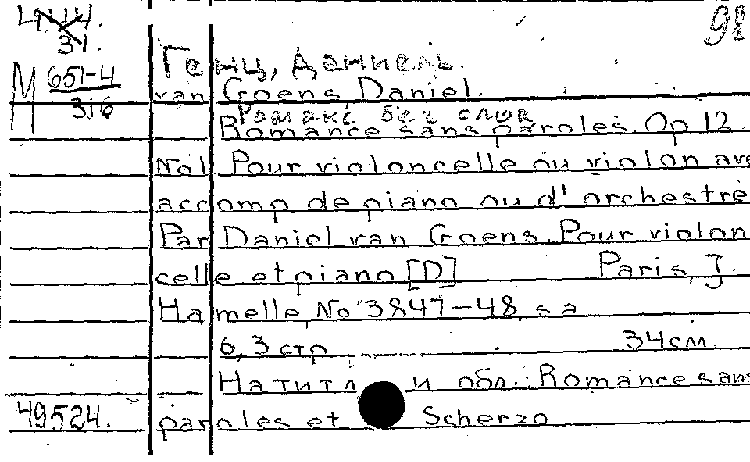 98
31.
М 651-4
316
Генц, Даниель.
van Goens Daniel.
Романс без слов
Romance sans paroles. Op 12
No1. Pour violoncelle ou violon ave
accomp de piano ou d'orchestre
Par Daniel van Goens. Pour violon
celle et piano [D] Paris, J.
Hamelle, No 3847-48, s a
6,3 стр 34см.
На титл и обл.: Romance sans
49524. paroles et Scherzo